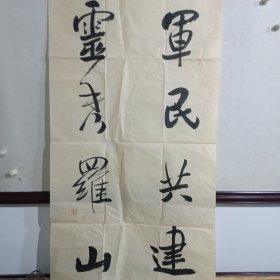 軍民共建
靈秀羅山